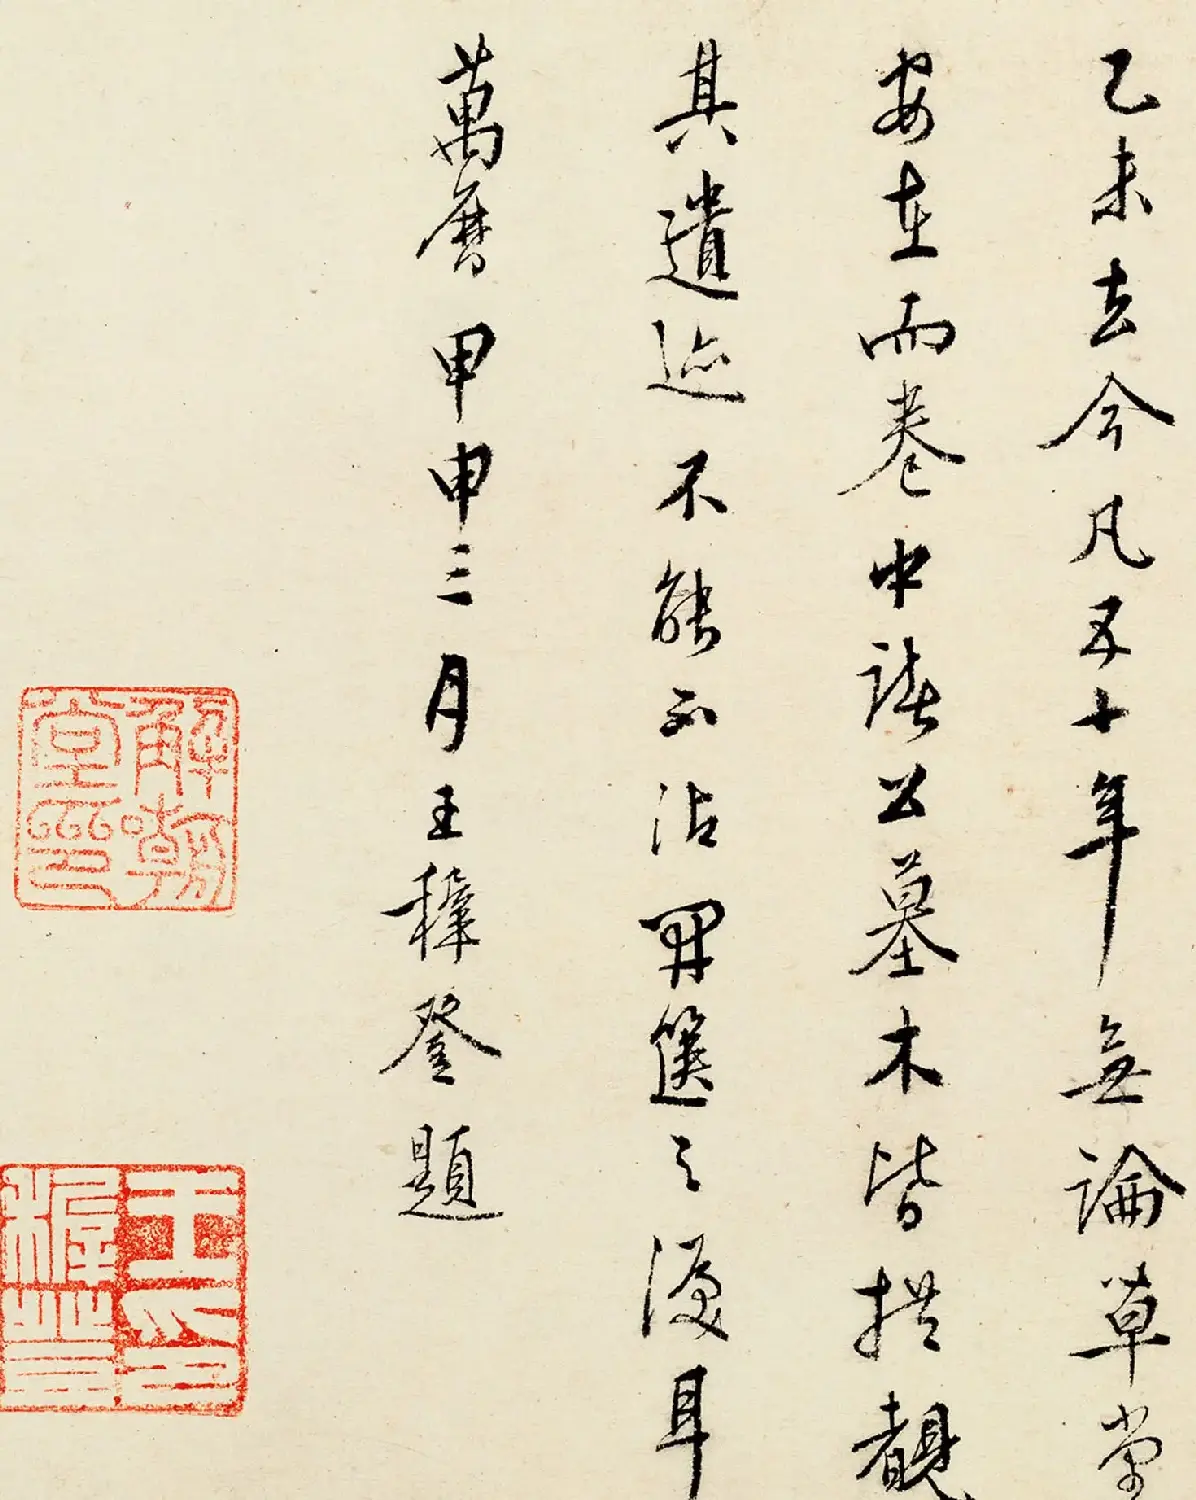 乙未去今凡五十年無論草堂
安在而卷中諸公墓木皆拱覩
其遺迹不能不沾開篋之淚耳
萬曆甲申三月王穉登題
解嘲堂印
王穉登印